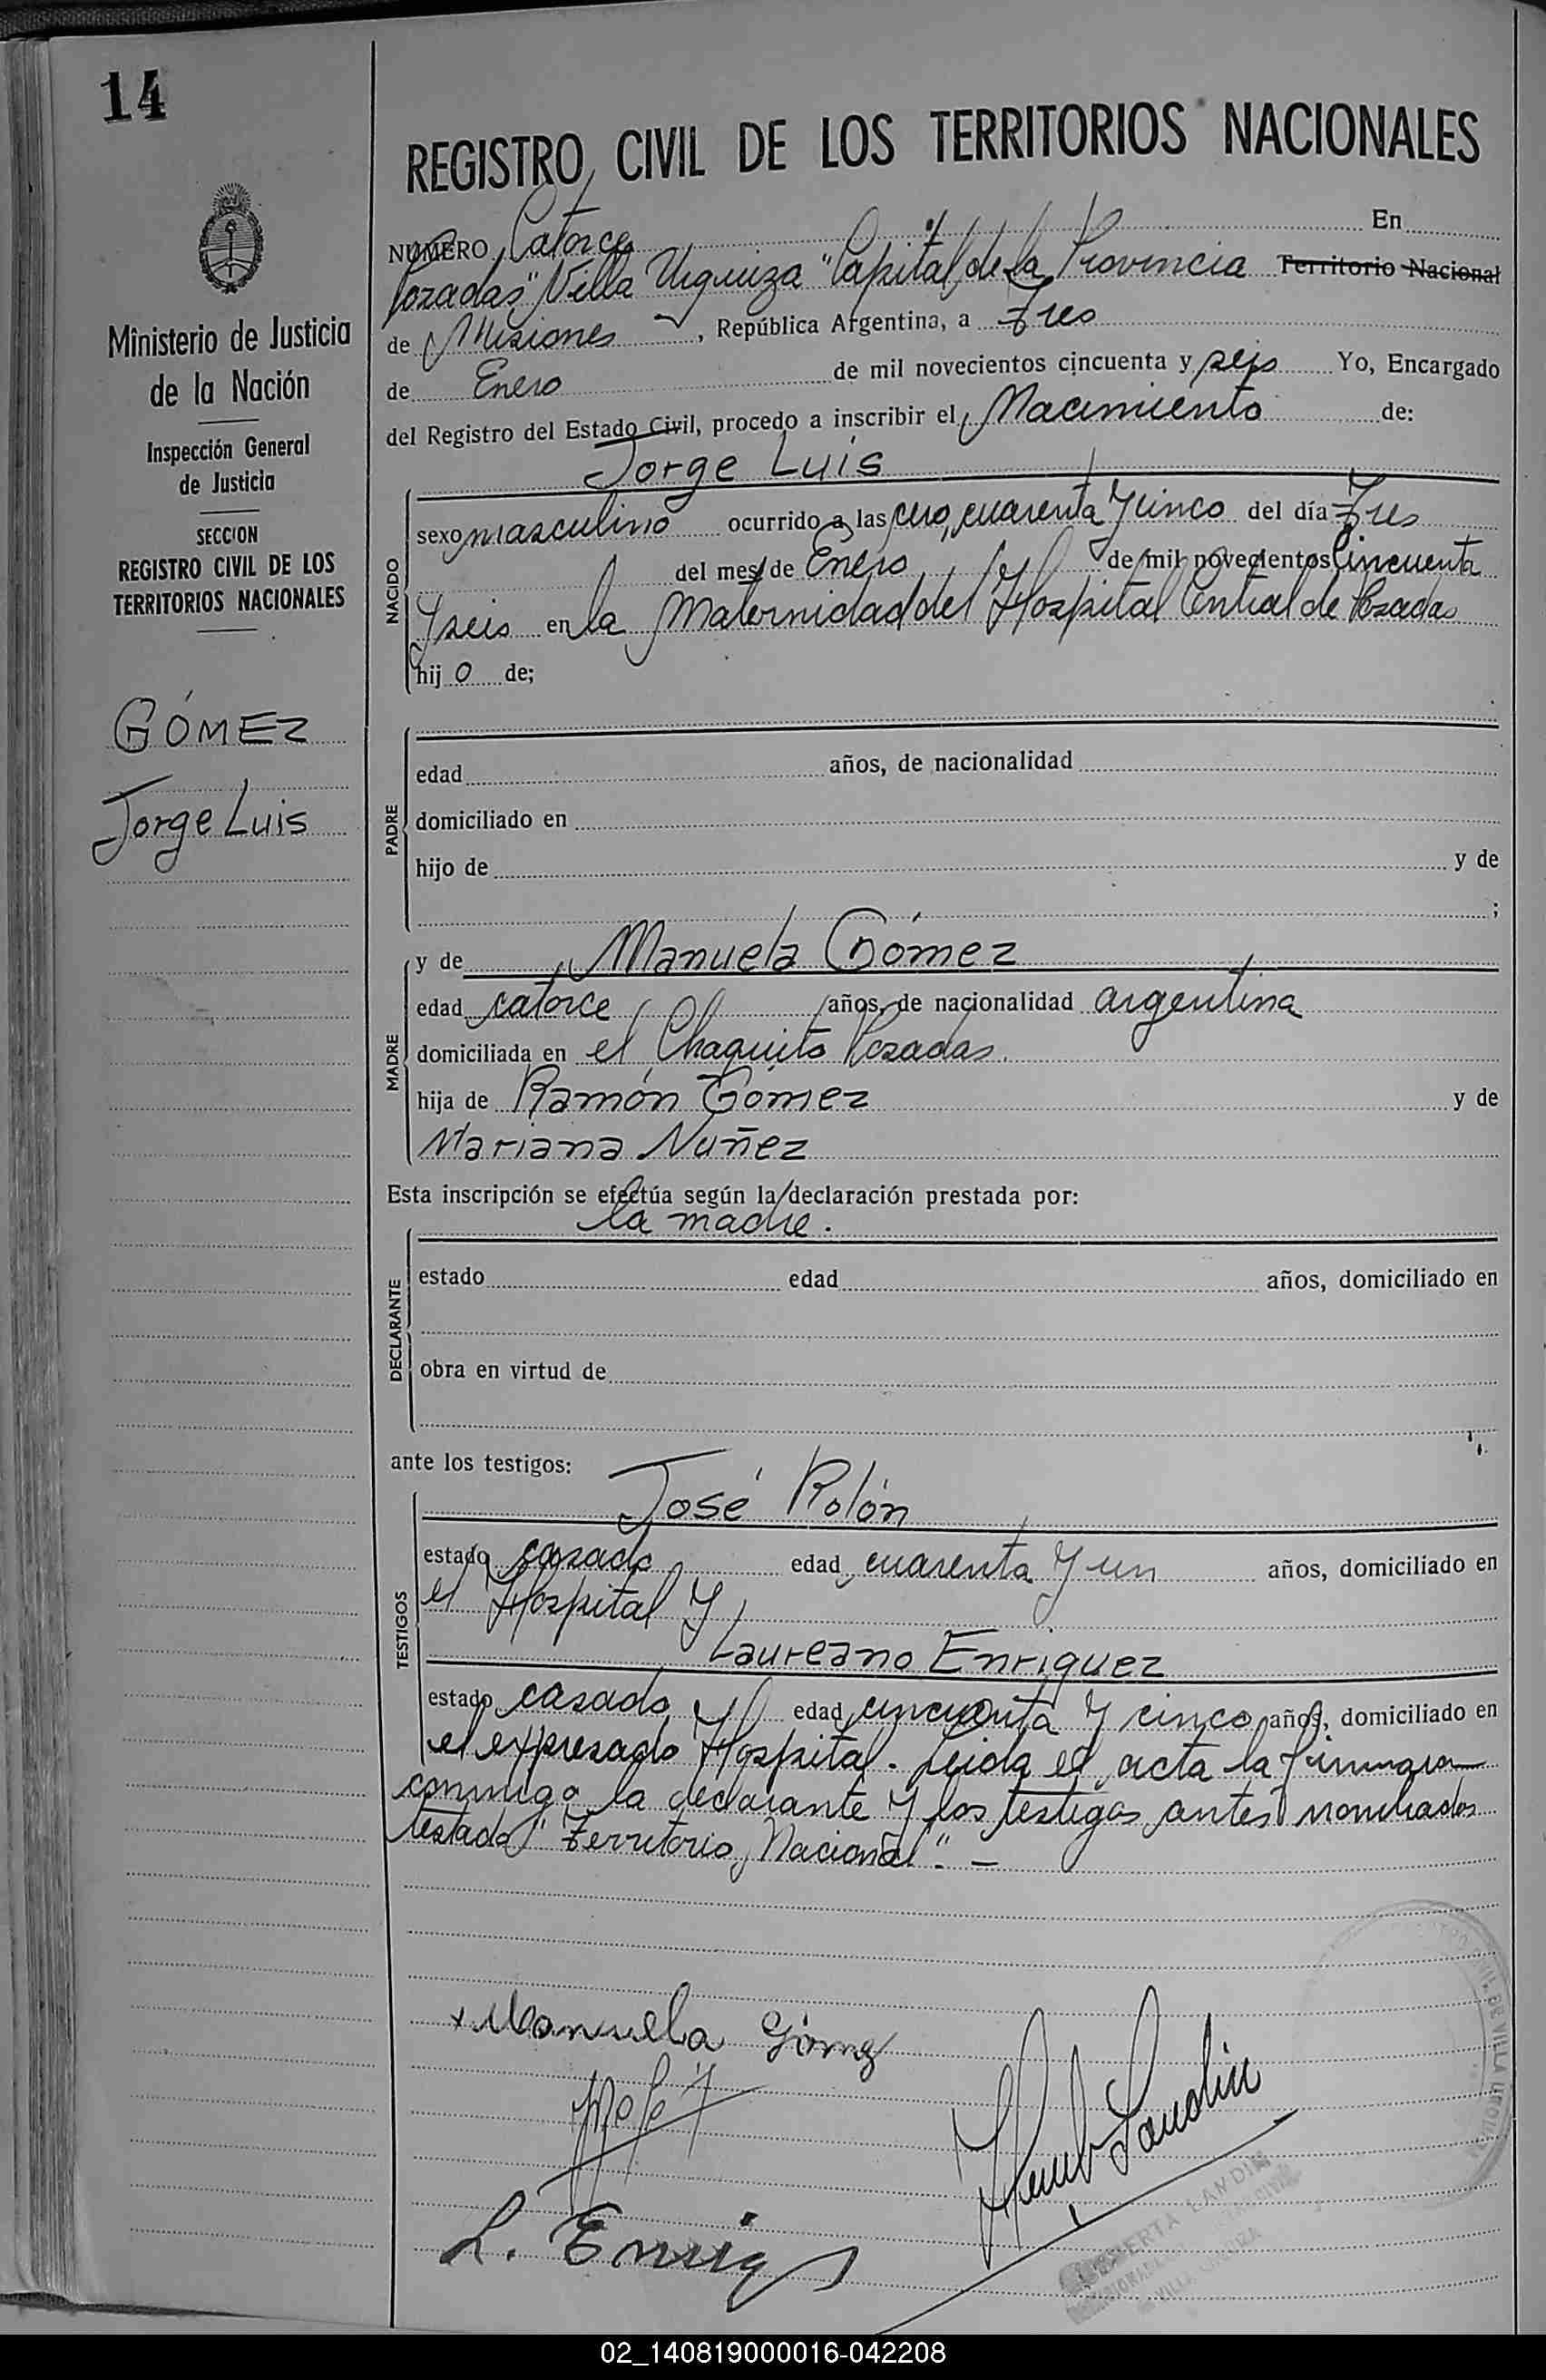 14
Ministerio de Justicia
de la Nación
Inspección General
de Justicia
SECCION
REGISTRO CIVIL DE LOS
TERRITORIOS NACIONALES
GÓMEZ
Jorge Luis
REGISTRO CIVIL DE LOS TERRITORIOS NACIONALES
NUMERO Catorce En
Posadas "Villa Urquiza" Capital de la Provincia Territorio Nacional
de Misiones, República Argentina, a Tres
de Enero de mil novecientos cincuenta y seis Yo, Encargado
del Registro del Estado Civil, procedo a inscribir el Nacimiento de:
Jorge Luis
NACIDO
sexo masculino ocurrido a las cero, cuarenta y cinco del día Tres
del mes de Enero de mil novecientos Cincuenta
y seis en la Maternidad del Hospital Central de Posadas
hij o de;
PADRE
edad años, de nacionalidad
domiciliado en
hijo de y de
;
MADRE
y de Manuela Gómez
edad catorce años, de nacionalidad argentina
domiciliada en el Chaquito Posadas.
hija de Ramón Gómez y de
Mariana Nuñez
Esta inscripción se efectúa según la declaración prestada por:
la madre.
DECLARANTE
estado edad años, domiciliado en
obra en virtud de
ante los testigos:
José Rolón
TESTIGOS
estado casado edad cuarenta y un años, domiciliado en
el Hospital y
Laureano Enriquez
estado casado edad cincuenta y cinco años, domiciliado en
el expresado Hospital. Leida el acta la firmaron
conmigo la declarante y los testigos antes nombrados
testado "Territorio Nacional". —
x Manuela Gómez
L. Enriq
LANDIN
02_140819000016-042208